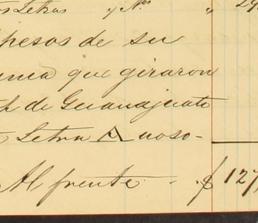 Letras y
pesos de su
que giraron
de Guanajuato
Letra A noso-
Al frente - $ 127